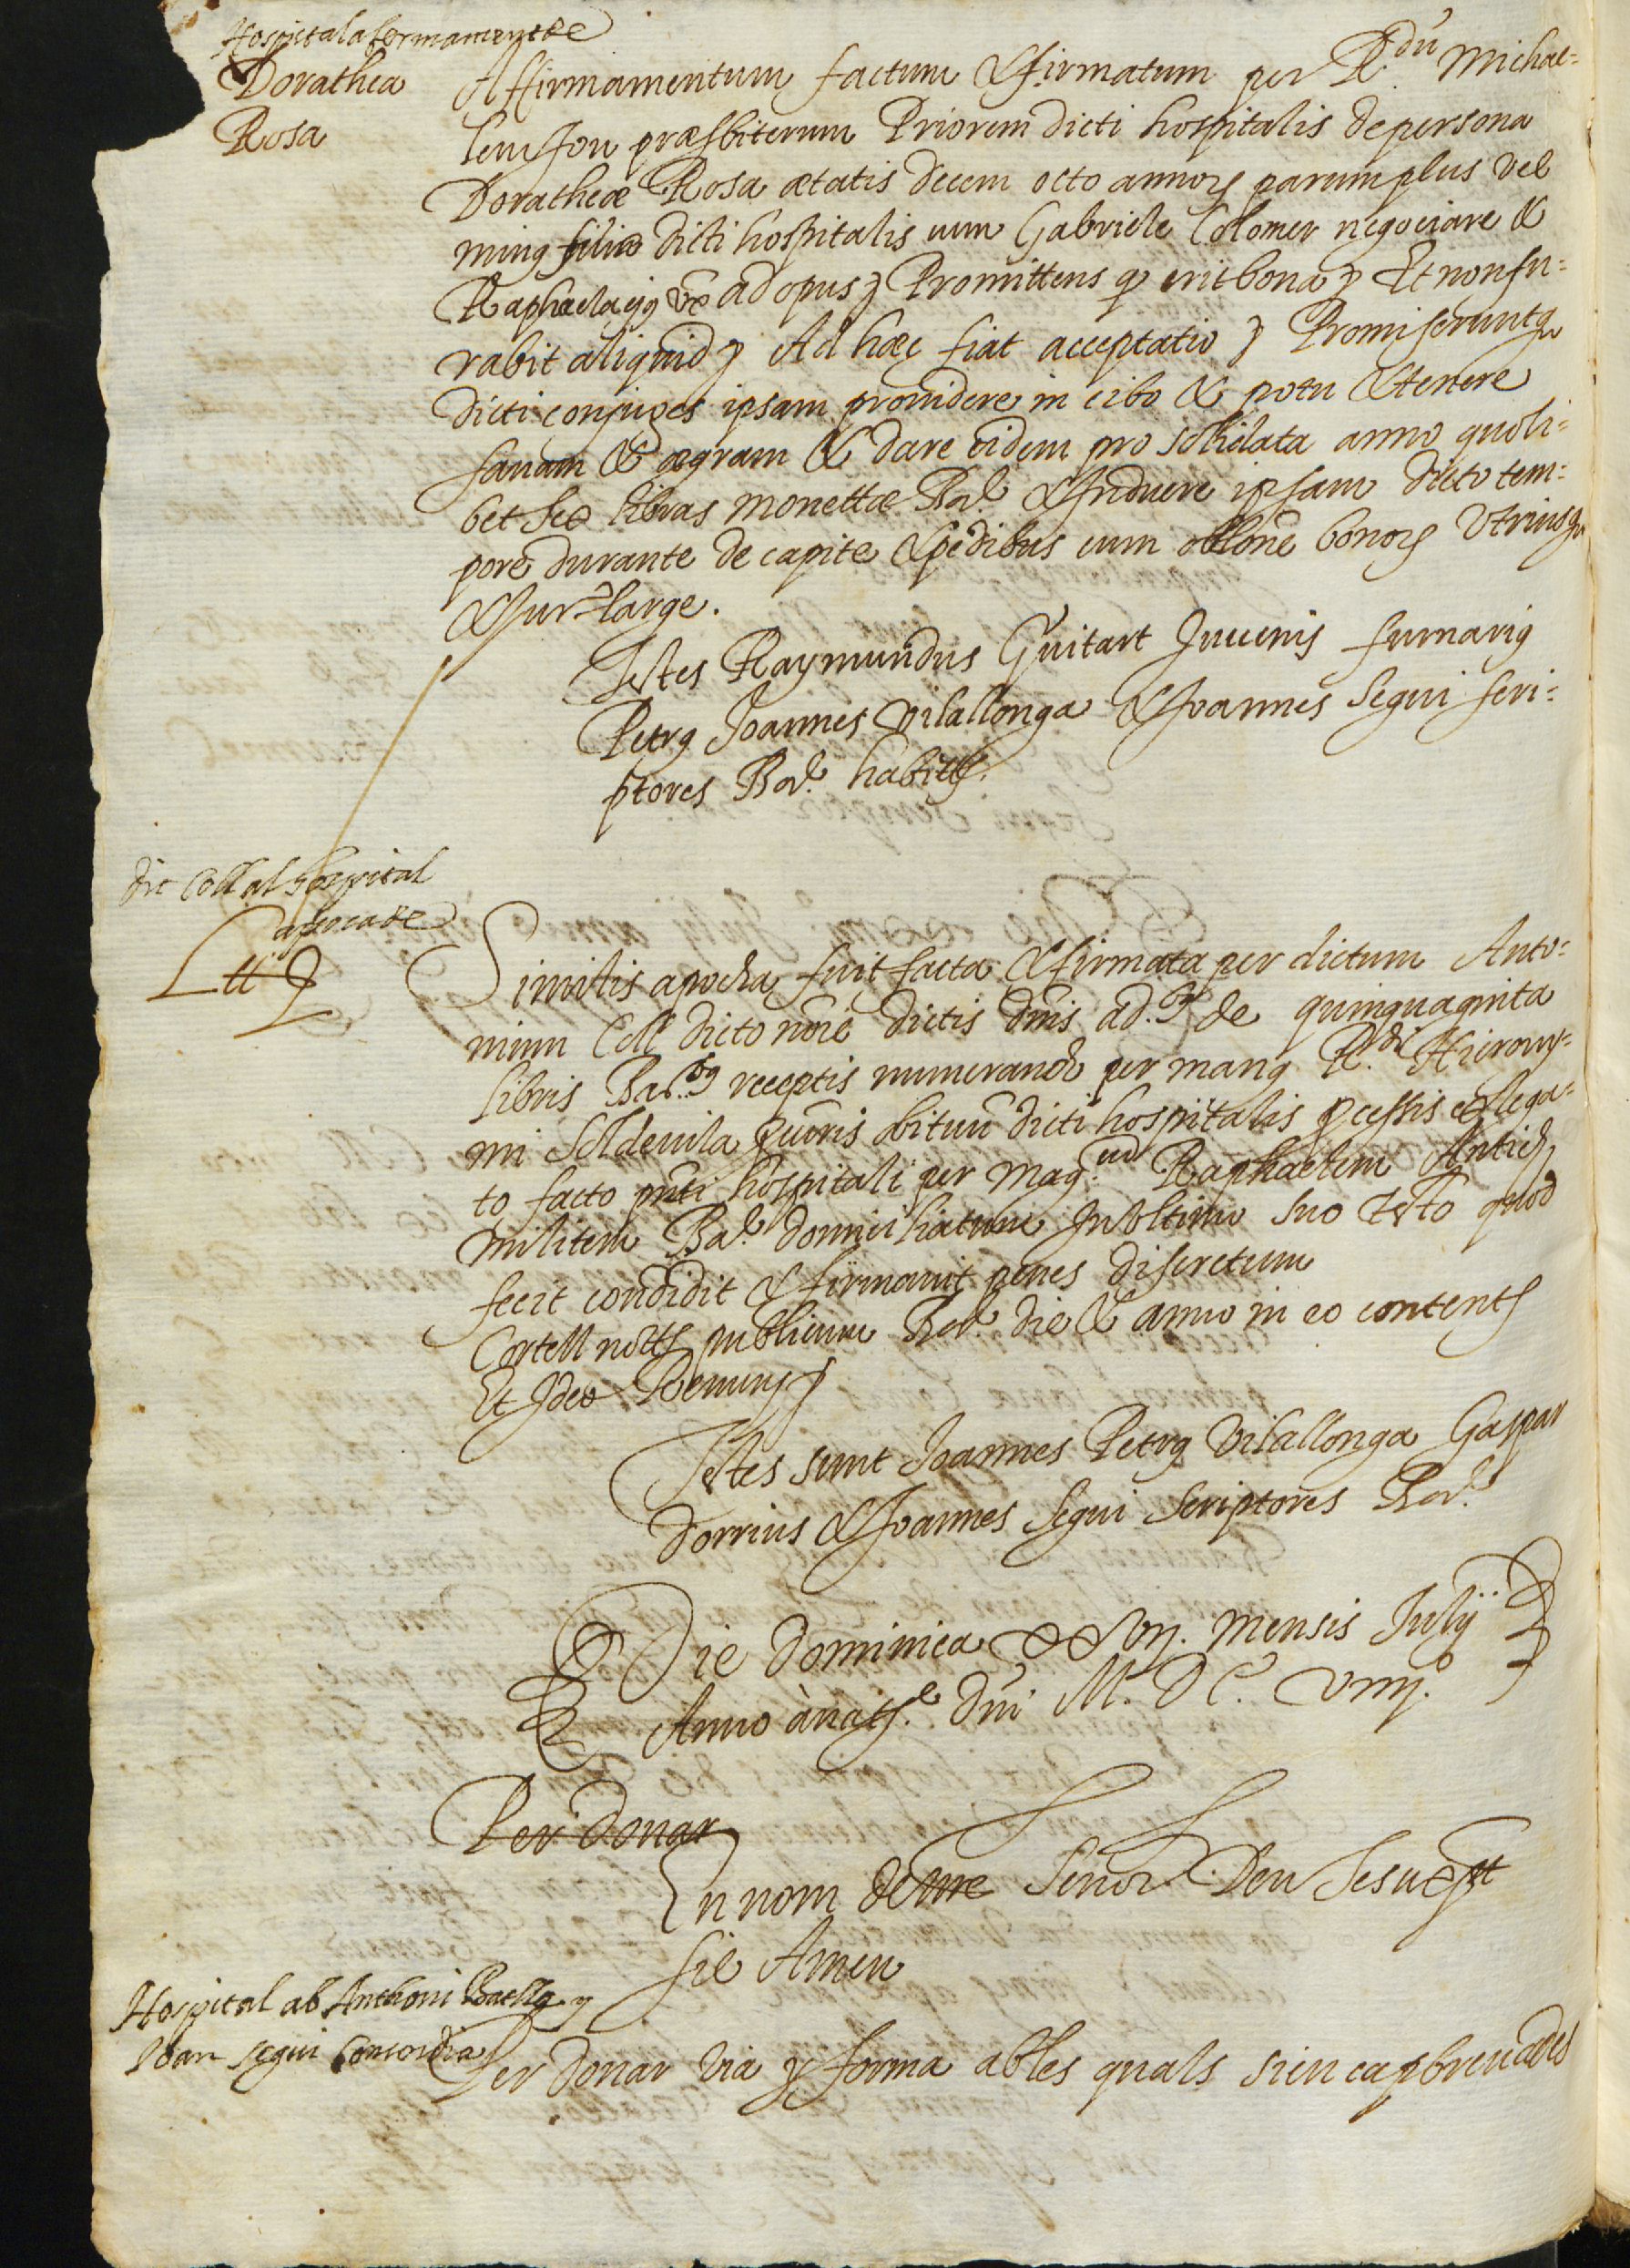 Hospital afermamentde
Dorathea
Rosa
Affirmamentum factum & firmatum per R.dū Michae=
lem Jou præsbiterum Priorem dicti hospitalis de persona
Doratheæ Rosa ætatis decem octo annoꝝ parum plus vel
minꝰ filiæ dicti hospitalis cum Gabriele Colomer negociatore &
Raphaela ejꝰ vx ad opus ꝫ Promittens ꝙ erit bona ꝫ Et non fu=
rabit aliquid ꝫ Ad hæc fiat acceptatio ꝫ Promiseruntqꝫ
dicti conjuges ipsam providere in cibo & potu & tenere
sanam & ægram & dare eidem pro solidata anno quoli=
bet sex libras monettæ Bar. & Induere ipsam dicto tem=
pore durante de capite & pedibus cum oblōne bonoꝝ Vtriusqꝫ
& Jur. large.
Testes Raymundus Guitart Juvenis furnariꝰ
Petrꝰ Joannes Vilallonga & Joannes Segui scri=
ptores Bar. habitꝭ.
dit Coll al hospital
apocade
Similis apocha fuit facta & firmata per dictum Anto=
nium Coll dicto nōie dictis dn̄is ad.ꝫ de quinquaginta
libris Bar. receptis numerando per manꝰ R.di Hierony=
mi Soldevila obituū dicti hospitalis ꝓcessis ex lega=
to facto pn̄ti hospitali per mag.cum Raphaelem Antich
militem Bar. domiciliatum In vltimo suo testō quod
fecit condidit & firmavit penes discretum
Cortell nottꝭ publicum Bar. die & anno in eo contentꝭ
Et Ideo Renunꝫ
Testes sunt Joannes Petrꝰ Vilallonga Gaspar
Dorrius & Joannes Segui Scriptores Bar.
Die Dominica xxvij. mensis Julij
Anno ànatꝭ. Dn̄i M. DC. viiij.
Per donar
En nom de n̄re Senor Deu Jesu xp̄t
sie Amen
Hospital ab Anthoni y
Joan Segui Concordia
Per donar via y forma ab les quals sien capbrevades